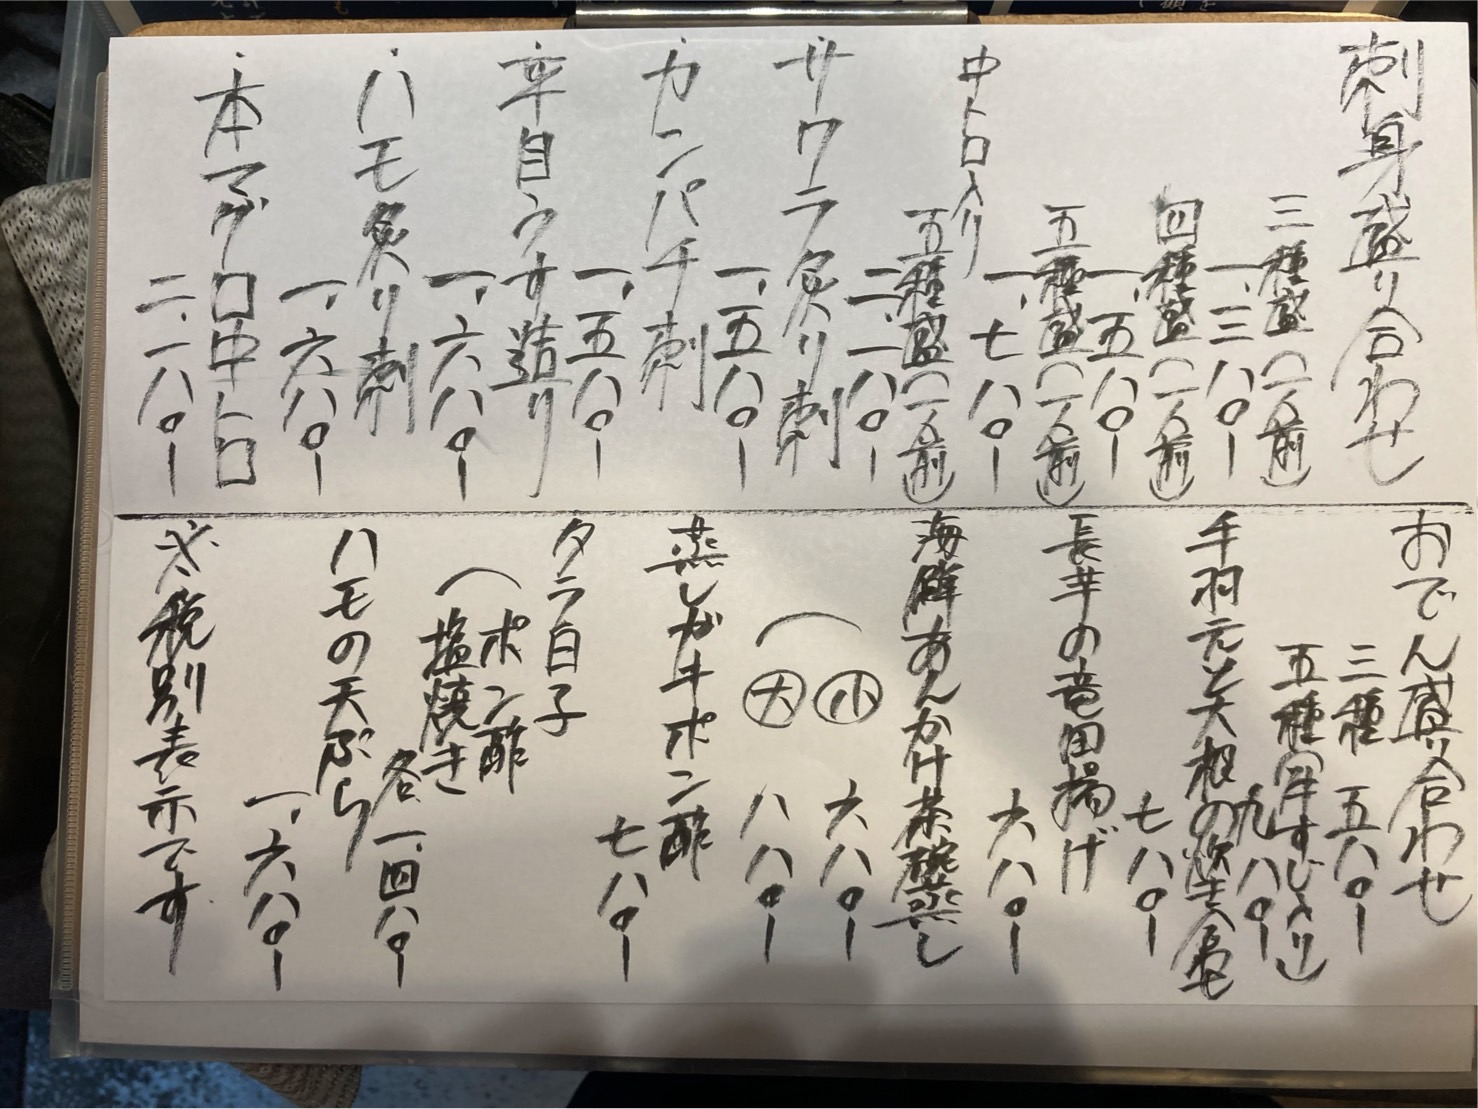 刺身盛り合わせ
三種盛(一人前)
一、三八〇ー
四種盛(一人前)
一、五八〇ー
五種盛(一人前)
一、七八〇ー
中トロ入り
五種盛(一人前)
二、一八〇ー
サワラ炙り刺
一、五八〇ー
・カンパチ刺
一、五八〇ー
・平目ウす造り
一、六八〇ー
・ハモ炙り刺
一、六八〇ー
・本マグロ中トロ
二、一八〇ー
おでん盛り合わせ
三種 五八〇ー
五種(牛すじ入り)
九八〇ー
手羽元と大根の炊き合せ
七八〇ー
長芋の竜田揚げ
六八〇ー
海鮮あんかけ茶碗蒸し
小 六八〇ー
大 八八〇ー
蒸しガキポン酢
七八〇ー
タラ白子
(ポン酢
塩焼き
各一、四八〇ー
ハモの天ぷら
一、六八〇ー
※税別表示です